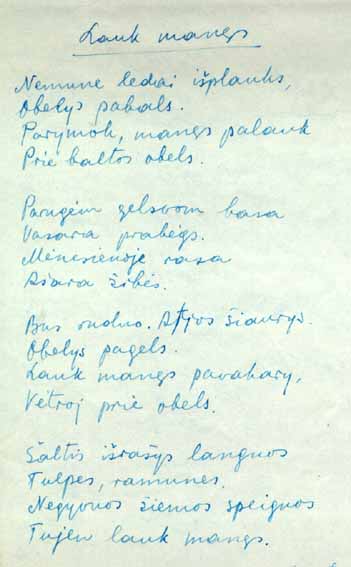 Lauk manęs
Nemune ledai išplauks,
Obelys pabals.
Parymok, manęs palauk
Prie baltos obels.
Parugėm gelsvom basa
Vasara prabėgs.
Mėnesienoje rasa
Ašara žibės.
Bus ruduo. Atjos šiaurys.
Obelys pagels.
Lauk manęs pavakary,
Vėtroj prie obels.
Šaltis išrašys languos
Tulpes, ramunes.
Negyvuos žiemos speiguos
Tujen lauk manęs.